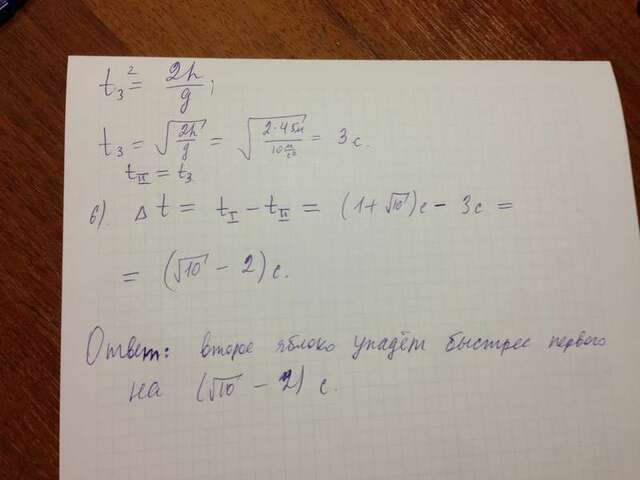 t₃² = 2h/g;
t₃ = √(2h/g) = √(2·45м/10м/с²) = 3 с.
t_II = t₃
6) Δt = t_I − t_II = (1+√10)с − 3с =
= (√10 − 2) с.
Ответ: второе яблоко упадёт быстрее первого
на (√10 − 2) с.